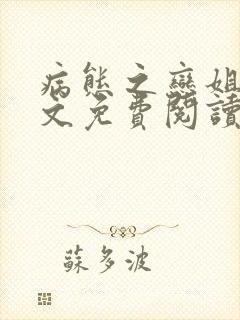 病態之戀姐
文免費閱讀
蘇多波